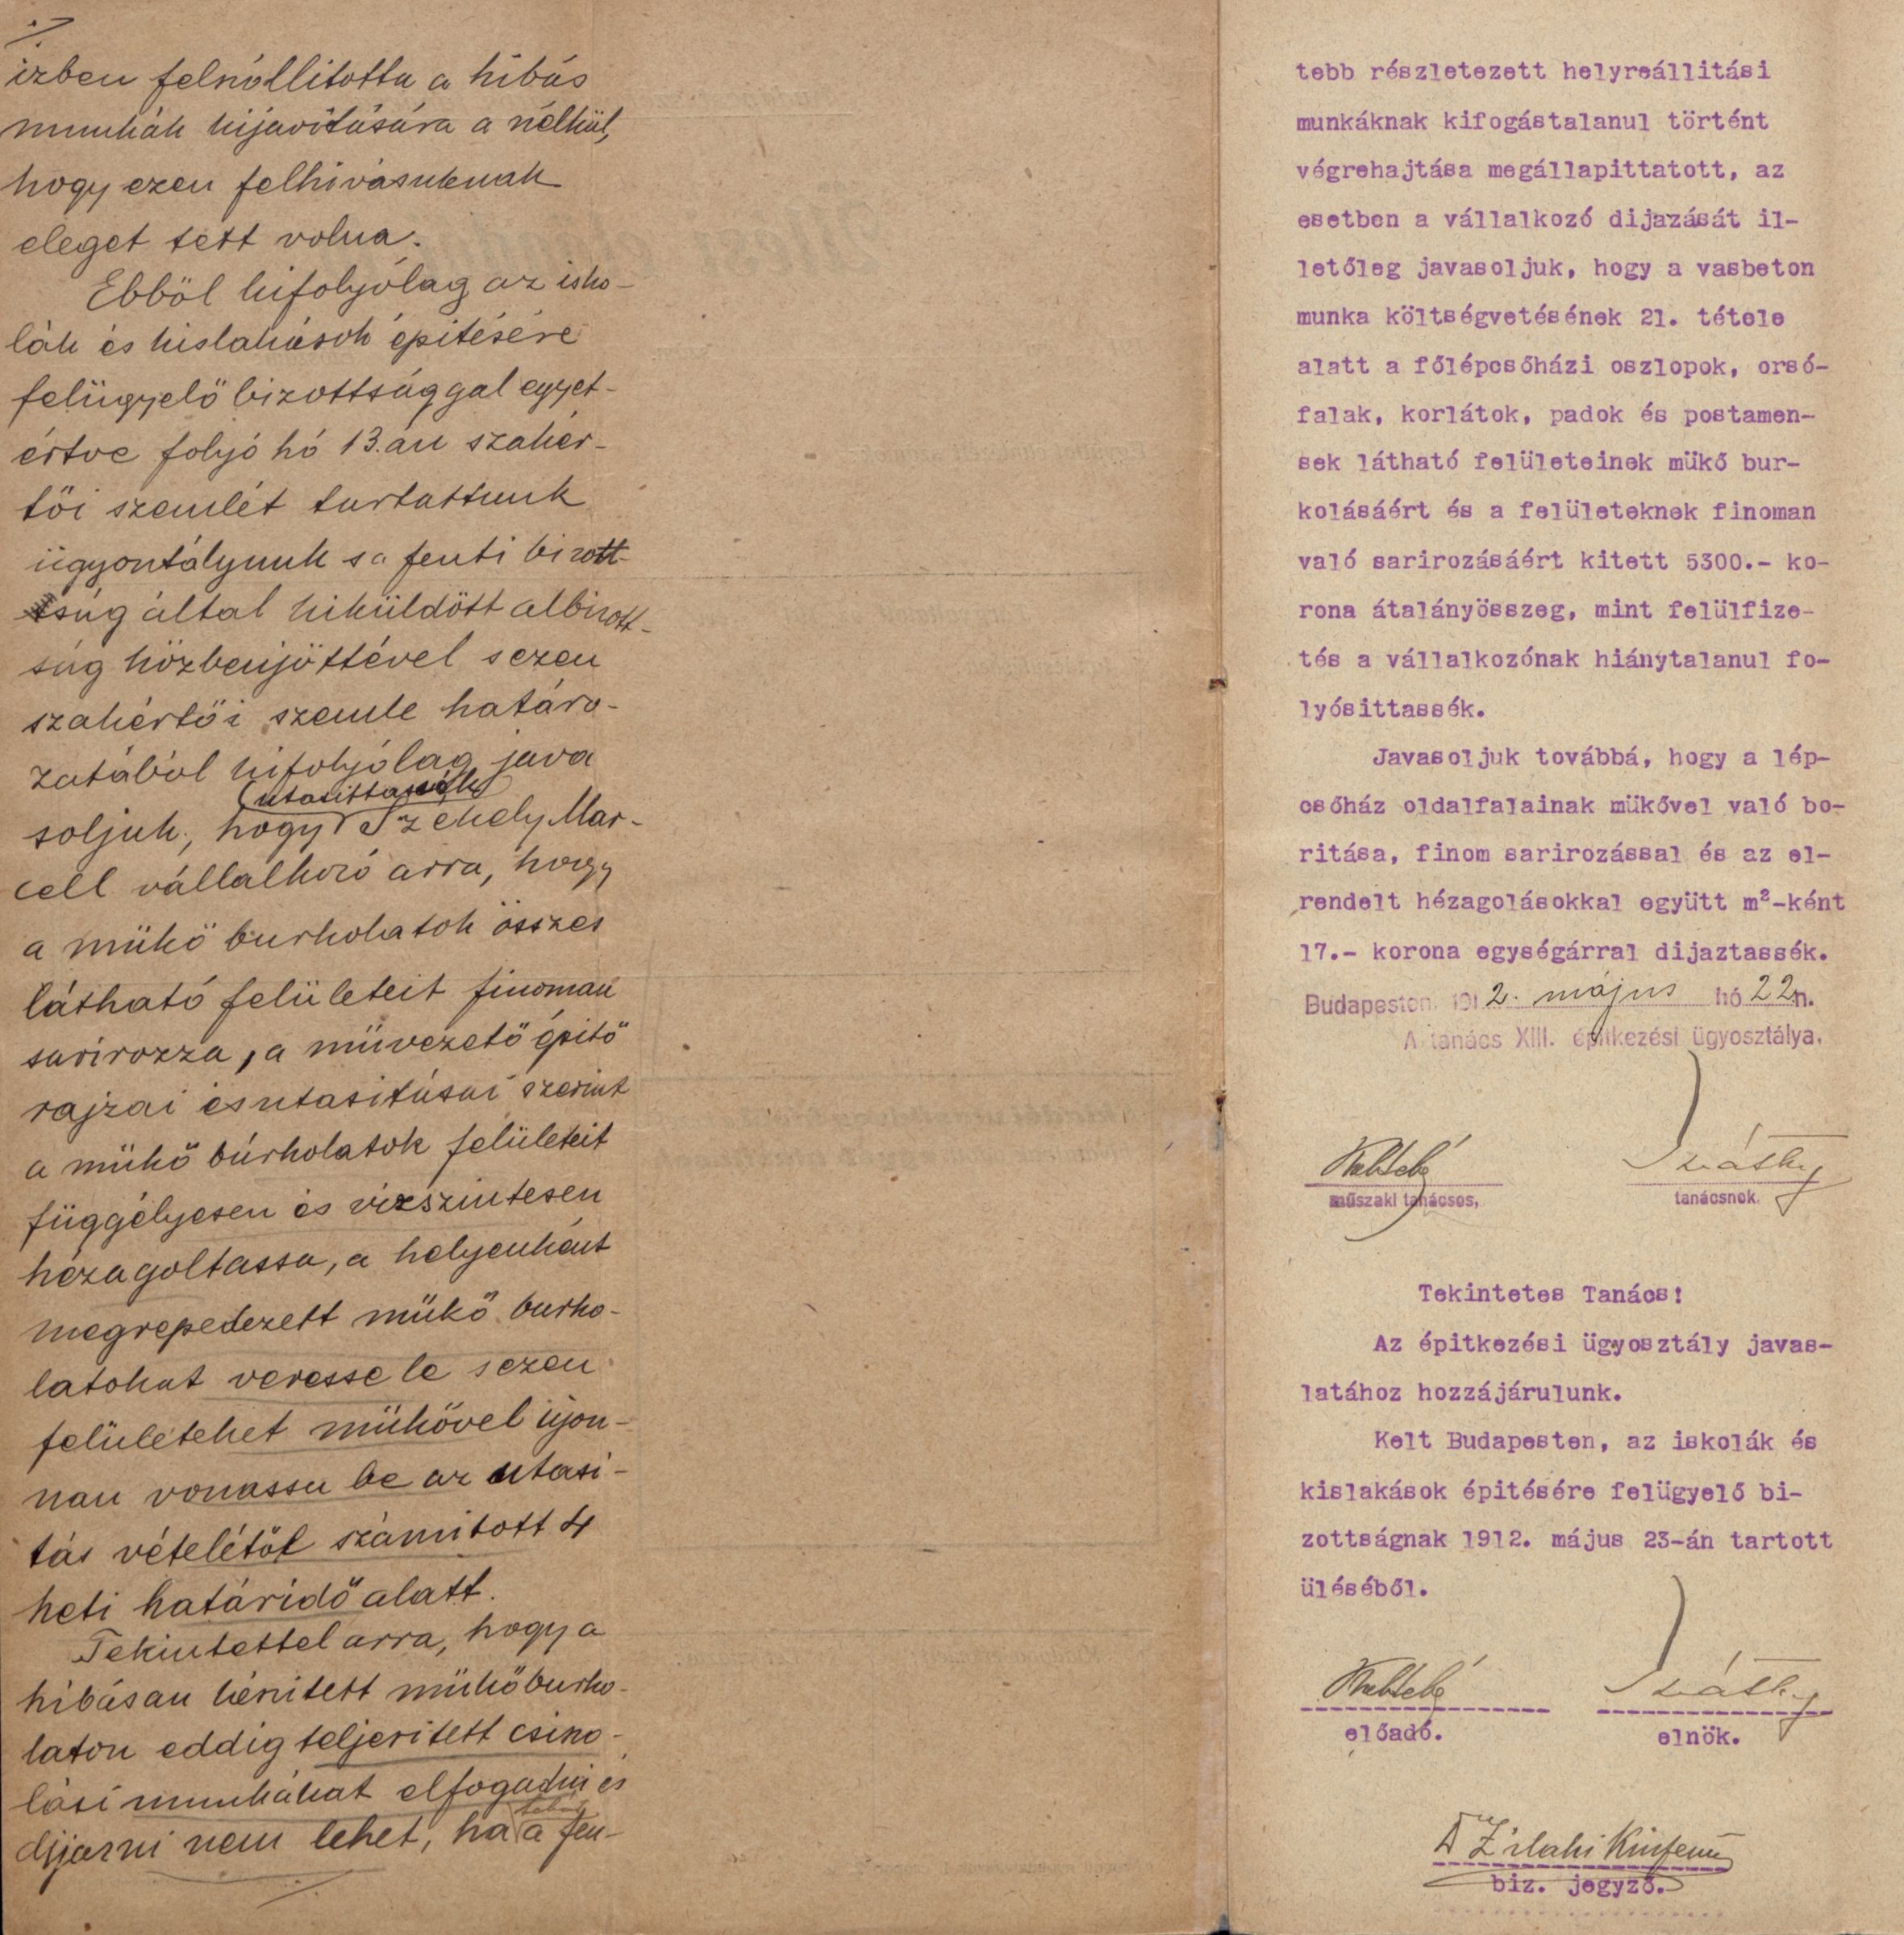 izben felszóllitotta a hibás
munkák kijavitására a nélkül,
hogy ezen felhivásuknak
eleget tett volna.
Ebböl kifolyólag az isko-
lák és kislakások épitésére
felügyelö bizottsággal egyet-
értve folyó hó 13.án szakér-
töi szemlét tartattunk
ügyosztályunk s a fenti bizott-
ság által kiküldött albizott-
ság közbenjöttével s ezen
szakértöi szemle határo-
zatából kifolyólag java
utasittassék
soljuk, hogy Székely Mar-
cell vállalkozó arra, hogy
a mükö burkolatok összes
látható felületeit finoman
sarirozza, a müvezetö épitö
rajzai és utasitásai szerint
a mükö burkolatok felületeit
függélyesen és vizszintesen
hézagoltassa, a helyenként
megrepedezett mükö burko-
latokat veresse le s ezen
felületeket mükövel ujon-
nan vonassa be az utasi-
tás vételétöl számitott 4
heti határidö alatt.
Tekintettel arra, hogy a
hibásan készitett mükö burko-
laton eddig teljesitett csiszo-
lási munkákat elfogadni és
dijazni nem lehet, ha a fen-
tebb részletezett helyreállitási
munkáknak kifogástalanul történt
végrehajtása megállapittatott, az
esetben a vállalkozó dijazását il-
letőleg javasoljuk, hogy a vasbeton
munka költségvetésének 21. tétele
alatt a főlépcsőházi oszlopok, orsó-
falak, korlátok, padok és postamen-
sek látható felületeinek mükő bur-
kolásáért és a felületeknek finoman
való sarirozásáért kitett 5300.- ko-
rona átalányösszeg, mint felülfize-
tés a vállalkozónak hiánytalanul fo-
lyósittassék.
Javasoljuk továbbá, hogy a lép-
csőház oldalfalainak mükővel való bo-
ritása, finom sarirozással és az el-
rendelt hézagolásokkal együtt m²-ként
17.- korona egységárral dijaztassék.
Budapesten, 1912. május hó 22n.
A tanács XIII. épitkezési ügyosztálya.
műszaki tanácsos,
tanácsnok.
Tekintetes Tanács!
Az épitkezési ügyosztály javas-
latához hozzájárulunk.
Kelt Budapesten, az iskolák és
kislakások épitésére felügyelő bi-
zottságnak 1912. május 23-án tartott
üléséből.
előadó.
elnök.
biz. jegyző.